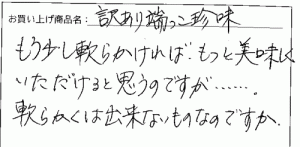 お買い上げ商品名： 訳あり端っこ珍味
もう少し軟らかければ、もっと美味しく
いただけると思うのですが……。
軟らかくは出来ないものなのですか。